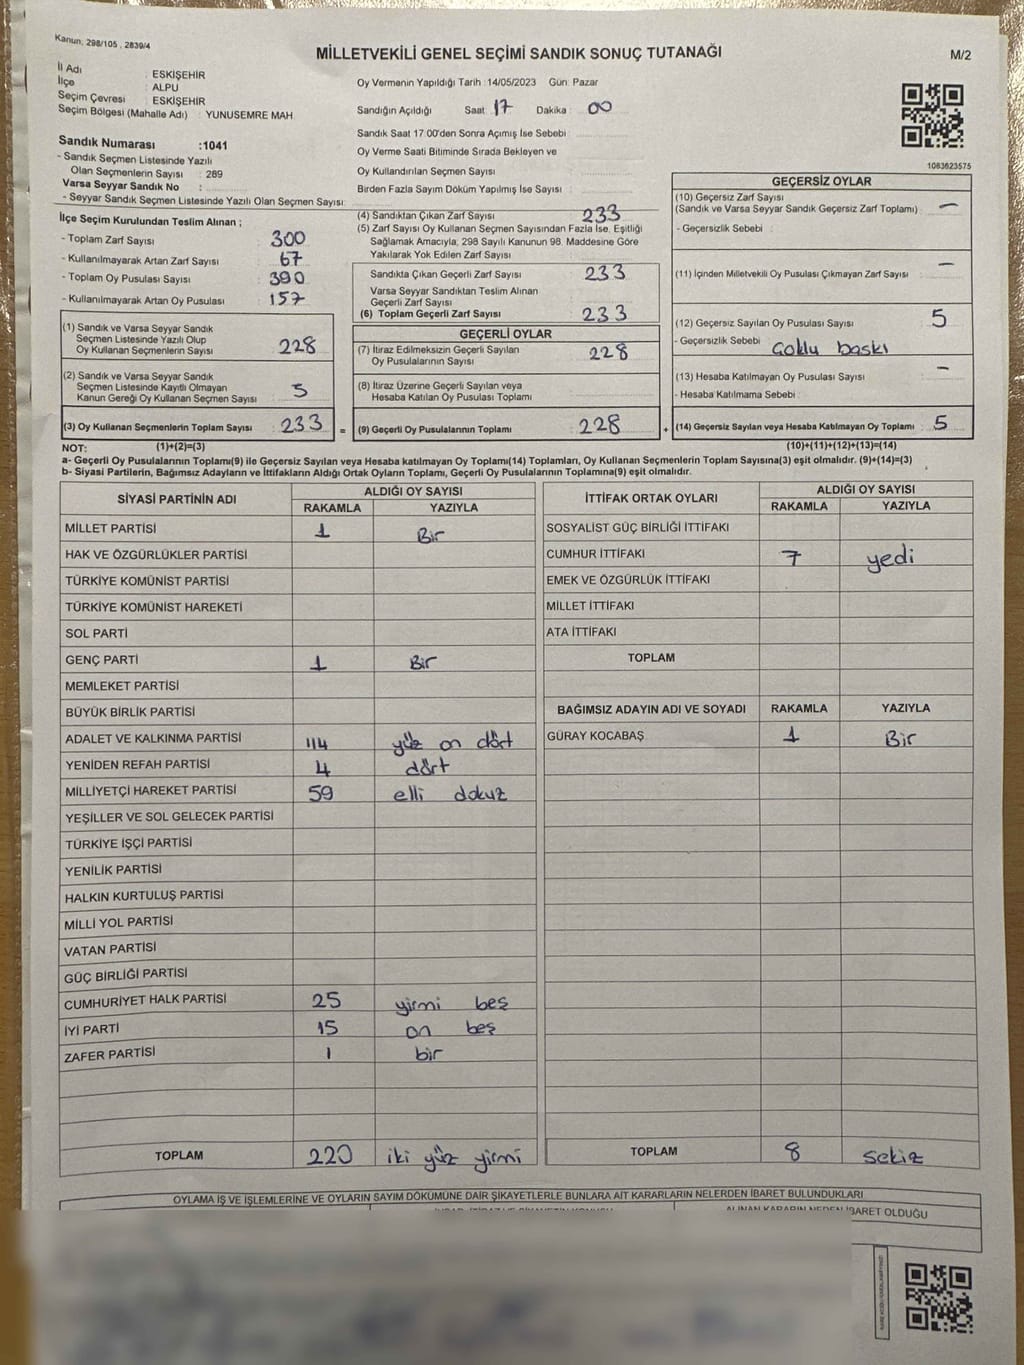 Kanun: 298/105 , 2839/4
MİLLETVEKİLİ GENEL SEÇİMİ SANDIK SONUÇ TUTANAĞI
M/2
İl Adı : ESKİŞEHİR
İlçe : ALPU
Seçim Çevresi : ESKİŞEHİR
Seçim Bölgesi (Mahalle Adı) : YUNUSEMRE MAH.
Sandık Numarası :1041
- Sandık Seçmen Listesinde Yazılı
Olan Seçmenlerin Sayısı : 289
Varsa Seyyar Sandık No :
- Seyyar Sandık Seçmen Listesinde Yazılı Olan Seçmen Sayısı:
Oy Vermenin Yapıldığı Tarih : 14/05/2023 Gün: Pazar
Sandığın Açıldığı Saat: 17 Dakika : 00
Sandık Saat 17 00'den Sonra Açımış İse Sebebi :
Oy Verme Saati Bitiminde Sırada Bekleyen ve
Oy Kullandırılan Seçmen Sayısı :
Birden Fazla Sayım Döküm Yapılmış İse Sayısı :
1083623575
İlçe Seçim Kurulundan Teslim Alınan ;
- Toplam Zarf Sayısı : 300
- Kullanılmayarak Artan Zarf Sayısı : 67
- Toplam Oy Pusulası Sayısı : 390
- Kullanılmayarak Artan Oy Pusulası : 157
(1) Sandık ve Varsa Seyyar Sandık
Seçmen Listesinde Yazılı Olup
Oy Kullanan Seçmenlerin Sayısı : 228
(2) Sandık ve Varsa Seyyar Sandık
Seçmen Listesinde Kayıtlı Olmayan
Kanun Gereği Oy Kullanan Seçmen Sayısı : 5
(3) Oy Kullanan Seçmenlerin Toplam Sayısı : 233 =
(4) Sandıktan Çıkan Zarf Sayısı : 233
(5) Zarf Sayısı Oy Kullanan Seçmen Sayısından Fazla İse, Eşitliği
Sağlamak Amacıyla, 298 Sayılı Kanunun 98. Maddesine Göre
Yakılarak Yok Edilen Zarf Sayısı :
Sandıkta Çıkan Geçerli Zarf Sayısı : 233
Varsa Seyyar Sandıktan Teslim Alınan
Geçerli Zarf Sayısı :
(6) Toplam Geçerli Zarf Sayısı : 233
GEÇERLİ OYLAR
(7) İtiraz Edilmeksizin Geçerli Sayılan
Oy Pusulalarının Sayısı : 228
(8) İtiraz Üzerine Geçerli Sayılan veya
Hesaba Katılan Oy Pusulası Toplamı :
(9) Geçerli Oy Pusulalarının Toplamı : 228 +
GEÇERSİZ OYLAR
(10) Geçersiz Zarf Sayısı
(Sandık ve Varsa Seyyar Sandık Geçersiz Zarf Toplamı) : —
- Geçersizlik Sebebi :
(11) İçinden Milletvekili Oy Pusulası Çıkmayan Zarf Sayısı : —
(12) Geçersiz Sayılan Oy Pusulası Sayısı : 5
- Geçersizlik Sebebi : Çoklu baskı
(13) Hesaba Katılmayan Oy Pusulası Sayısı : —
- Hesaba Katılmama Sebebi :
(14) Geçersiz Sayılan veya Hesaba Katılmayan Oy Toplamı : 5
NOT: (1)+(2)=(3) (10)+(11)+(12)+(13)=(14)
a- Geçerli Oy Pusulalarının Toplamı(9) ile Geçersiz Sayılan veya Hesaba katılmayan Oy Toplamı(14) Toplamları, Oy Kullanan Seçmenlerin Toplam Sayısına(3) eşit olmalıdır. (9)+(14)=(3)
b- Siyasi Partilerin, Bağımsız Adayların ve İttifakların Aldığı Ortak Oyların Toplamı, Geçerli Oy Pusulalarının Toplamına(9) eşit olmalıdır.
SİYASİ PARTİNİN ADI ALDIĞI OY SAYISI
RAKAMLA YAZIYLA
MİLLET PARTİSİ 1 Bir
HAK VE ÖZGÜRLÜKLER PARTİSİ
TÜRKİYE KOMÜNİST PARTİSİ
TÜRKİYE KOMÜNİST HAREKETİ
SOL PARTİ
GENÇ PARTİ 1 Bir
MEMLEKET PARTİSİ
BÜYÜK BİRLİK PARTİSİ
ADALET VE KALKINMA PARTİSİ 114 yüz on dört
YENİDEN REFAH PARTİSİ 4 dört
MİLLİYETÇİ HAREKET PARTİSİ 59 elli dokuz
YEŞİLLER VE SOL GELECEK PARTİSİ
TÜRKİYE İŞÇİ PARTİSİ
YENİLİK PARTİSİ
HALKIN KURTULUŞ PARTİSİ
MİLLİ YOL PARTİSİ
VATAN PARTİSİ
GÜÇ BİRLİĞİ PARTİSİ
CUMHURİYET HALK PARTİSİ 25 yirmi beş
İYİ PARTİ 15 on beş
ZAFER PARTİSİ 1 bir
TOPLAM 220 iki yüz yirmi
İTTİFAK ORTAK OYLARI ALDIĞI OY SAYISI
RAKAMLA YAZIYLA
SOSYALİST GÜÇ BİRLİĞİ İTTİFAKI
CUMHUR İTTİFAKI 7 yedi
EMEK VE ÖZGÜRLÜK İTTİFAKI
MİLLET İTTİFAKI
ATA İTTİFAKI
TOPLAM
BAĞIMSIZ ADAYIN ADI VE SOYADI RAKAMLA YAZIYLA
GÜRAY KOCABAŞ 1 Bir
TOPLAM 8 sekiz
OYLAMA İŞ VE İŞLEMLERİNE VE OYLARIN SAYIM DÖKÜMÜNE DAİR ŞİKAYETLERLE BUNLARA AİT KARARLARIN NELERDEN İBARET BULUNDUKLARI
ALINAN KARARIN NEDEN İBARET OLDUĞU